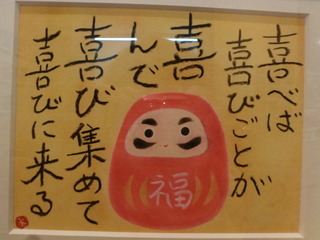 喜べば
喜びごとが
喜んで
喜び集めて
喜びに来る
福